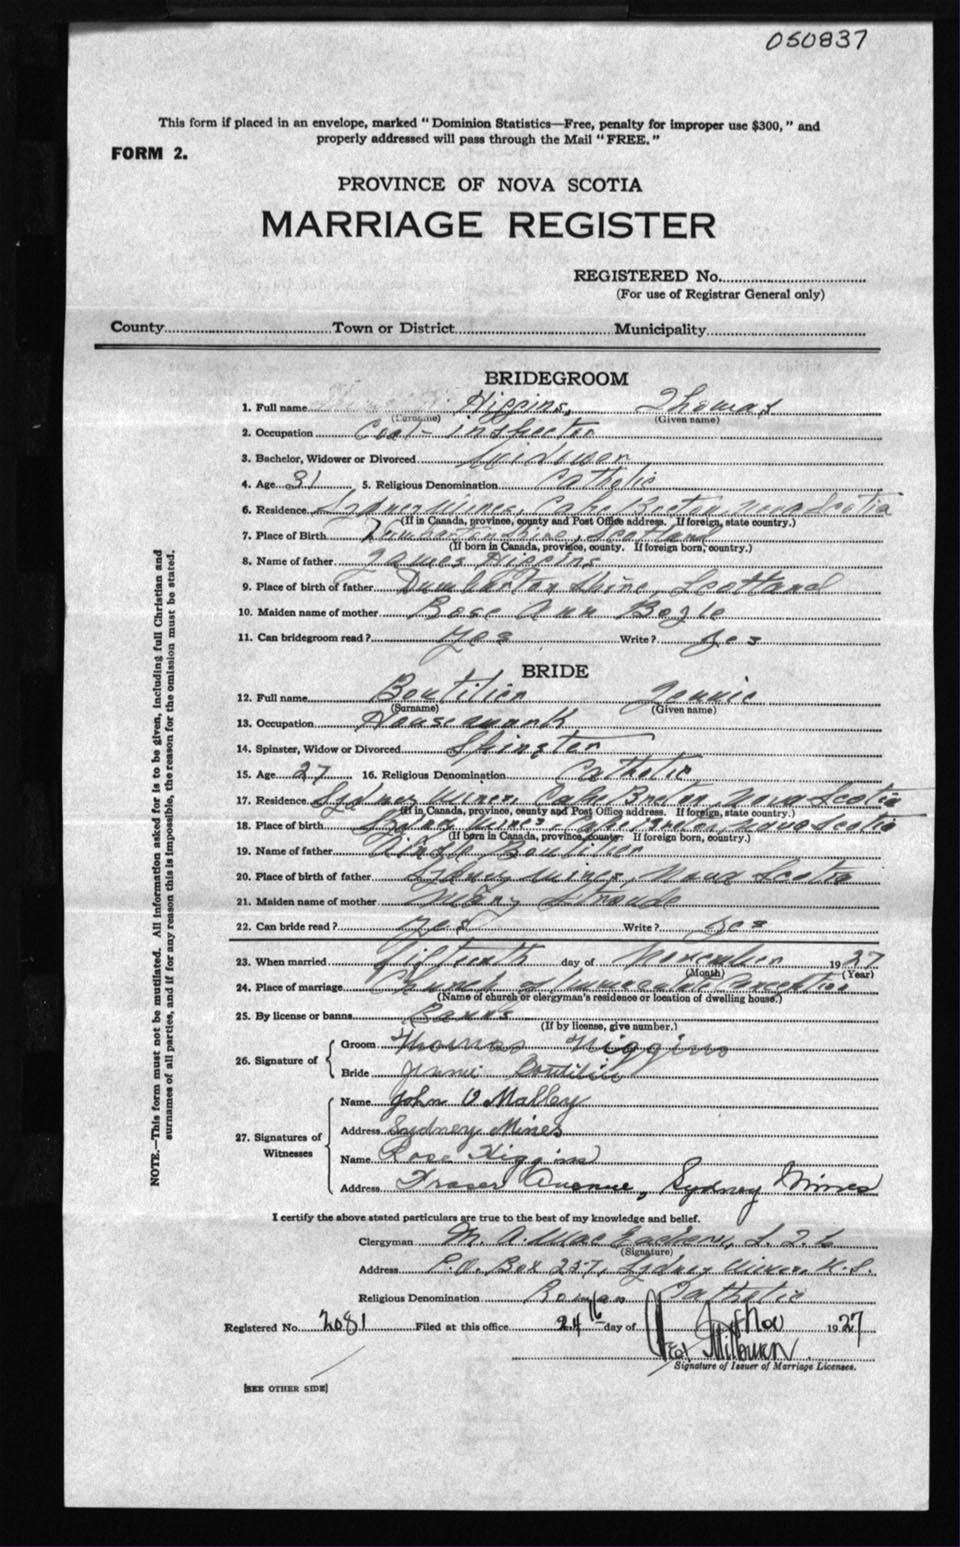 050837
This form if placed in an envelope, marked "Dominion Statistics—Free, penalty for improper use $300," and
properly addressed will pass through the Mail "FREE."
FORM 2.
PROVINCE OF NOVA SCOTIA
MARRIAGE REGISTER
REGISTERED No.
(For use of Registrar General only)
County Town or District Municipality
BRIDEGROOM
1. Full name Higgins, Thomas
(Surname) (Given name)
2. Occupation Coal-inspector
3. Bachelor, Widower or Divorced Widower
4. Age 31 5. Religious Denomination Catholic
6. Residence Sydney Mines, Cape Breton, Nova Scotia
(If in Canada, province, county and Post Office address. If foreign, state country.)
7. Place of Birth Dumbartonshire, Scotland
(If born in Canada, province, county. If foreign born, country.)
8. Name of father James Higgins
9. Place of birth of father Dumbartonshire, Scotland
10. Maiden name of mother Rose Ann Bogle
11. Can bridegroom read? Yes Write? Yes
BRIDE
12. Full name Boutilier Jennie
(Surname) (Given name)
13. Occupation Housework
14. Spinster, Widow or Divorced Spinster
15. Age 27 16. Religious Denomination Catholic
17. Residence Sydney Mines, Cape Breton, Nova Scotia
(If in Canada, province, county and Post Office address. If foreign, state country.)
18. Place of birth Sydney Mines, Cape Breton, Nova Scotia
(If born in Canada, province, county. If foreign born, country.)
19. Name of father Boutilier
20. Place of birth of father Sydney Mines, Nova Scotia
21. Maiden name of mother Mary Stroude
22. Can bride read? Yes Write? Yes
23. When married fifteenth day of November 1927
(Month) (Year)
24. Place of marriage Church of Immaculate Conception
(Name of church or clergyman's residence or location of dwelling house.)
25. By license or banns Banns
(If by license, give number.)
26. Signature of Groom Thomas Higgins
Bride Jennie Boutilier
27. Signatures of Witnesses Name John O Malley
Address Sydney Mines
Name Rose Higgins
Address Fraser Avenue, Sydney Mines
I certify the above stated particulars are true to the best of my knowledge and belief.
Clergyman M. A. MacEachern,
(Signature)
Address P.O. Box 257, Sydney Mines, N.S.
Religious Denomination Roman Catholic
Registered No. 2081 Filed at this office 24th day of Nov 1927
Milburn
Signature of Issuer of Marriage Licenses.
[SEE OTHER SIDE]
NOTE.—This form must not be mutilated. All information asked for is to be given, including full Christian and
surnames of all parties, and if for any reason this is impossible, the reason for the omission must be stated.